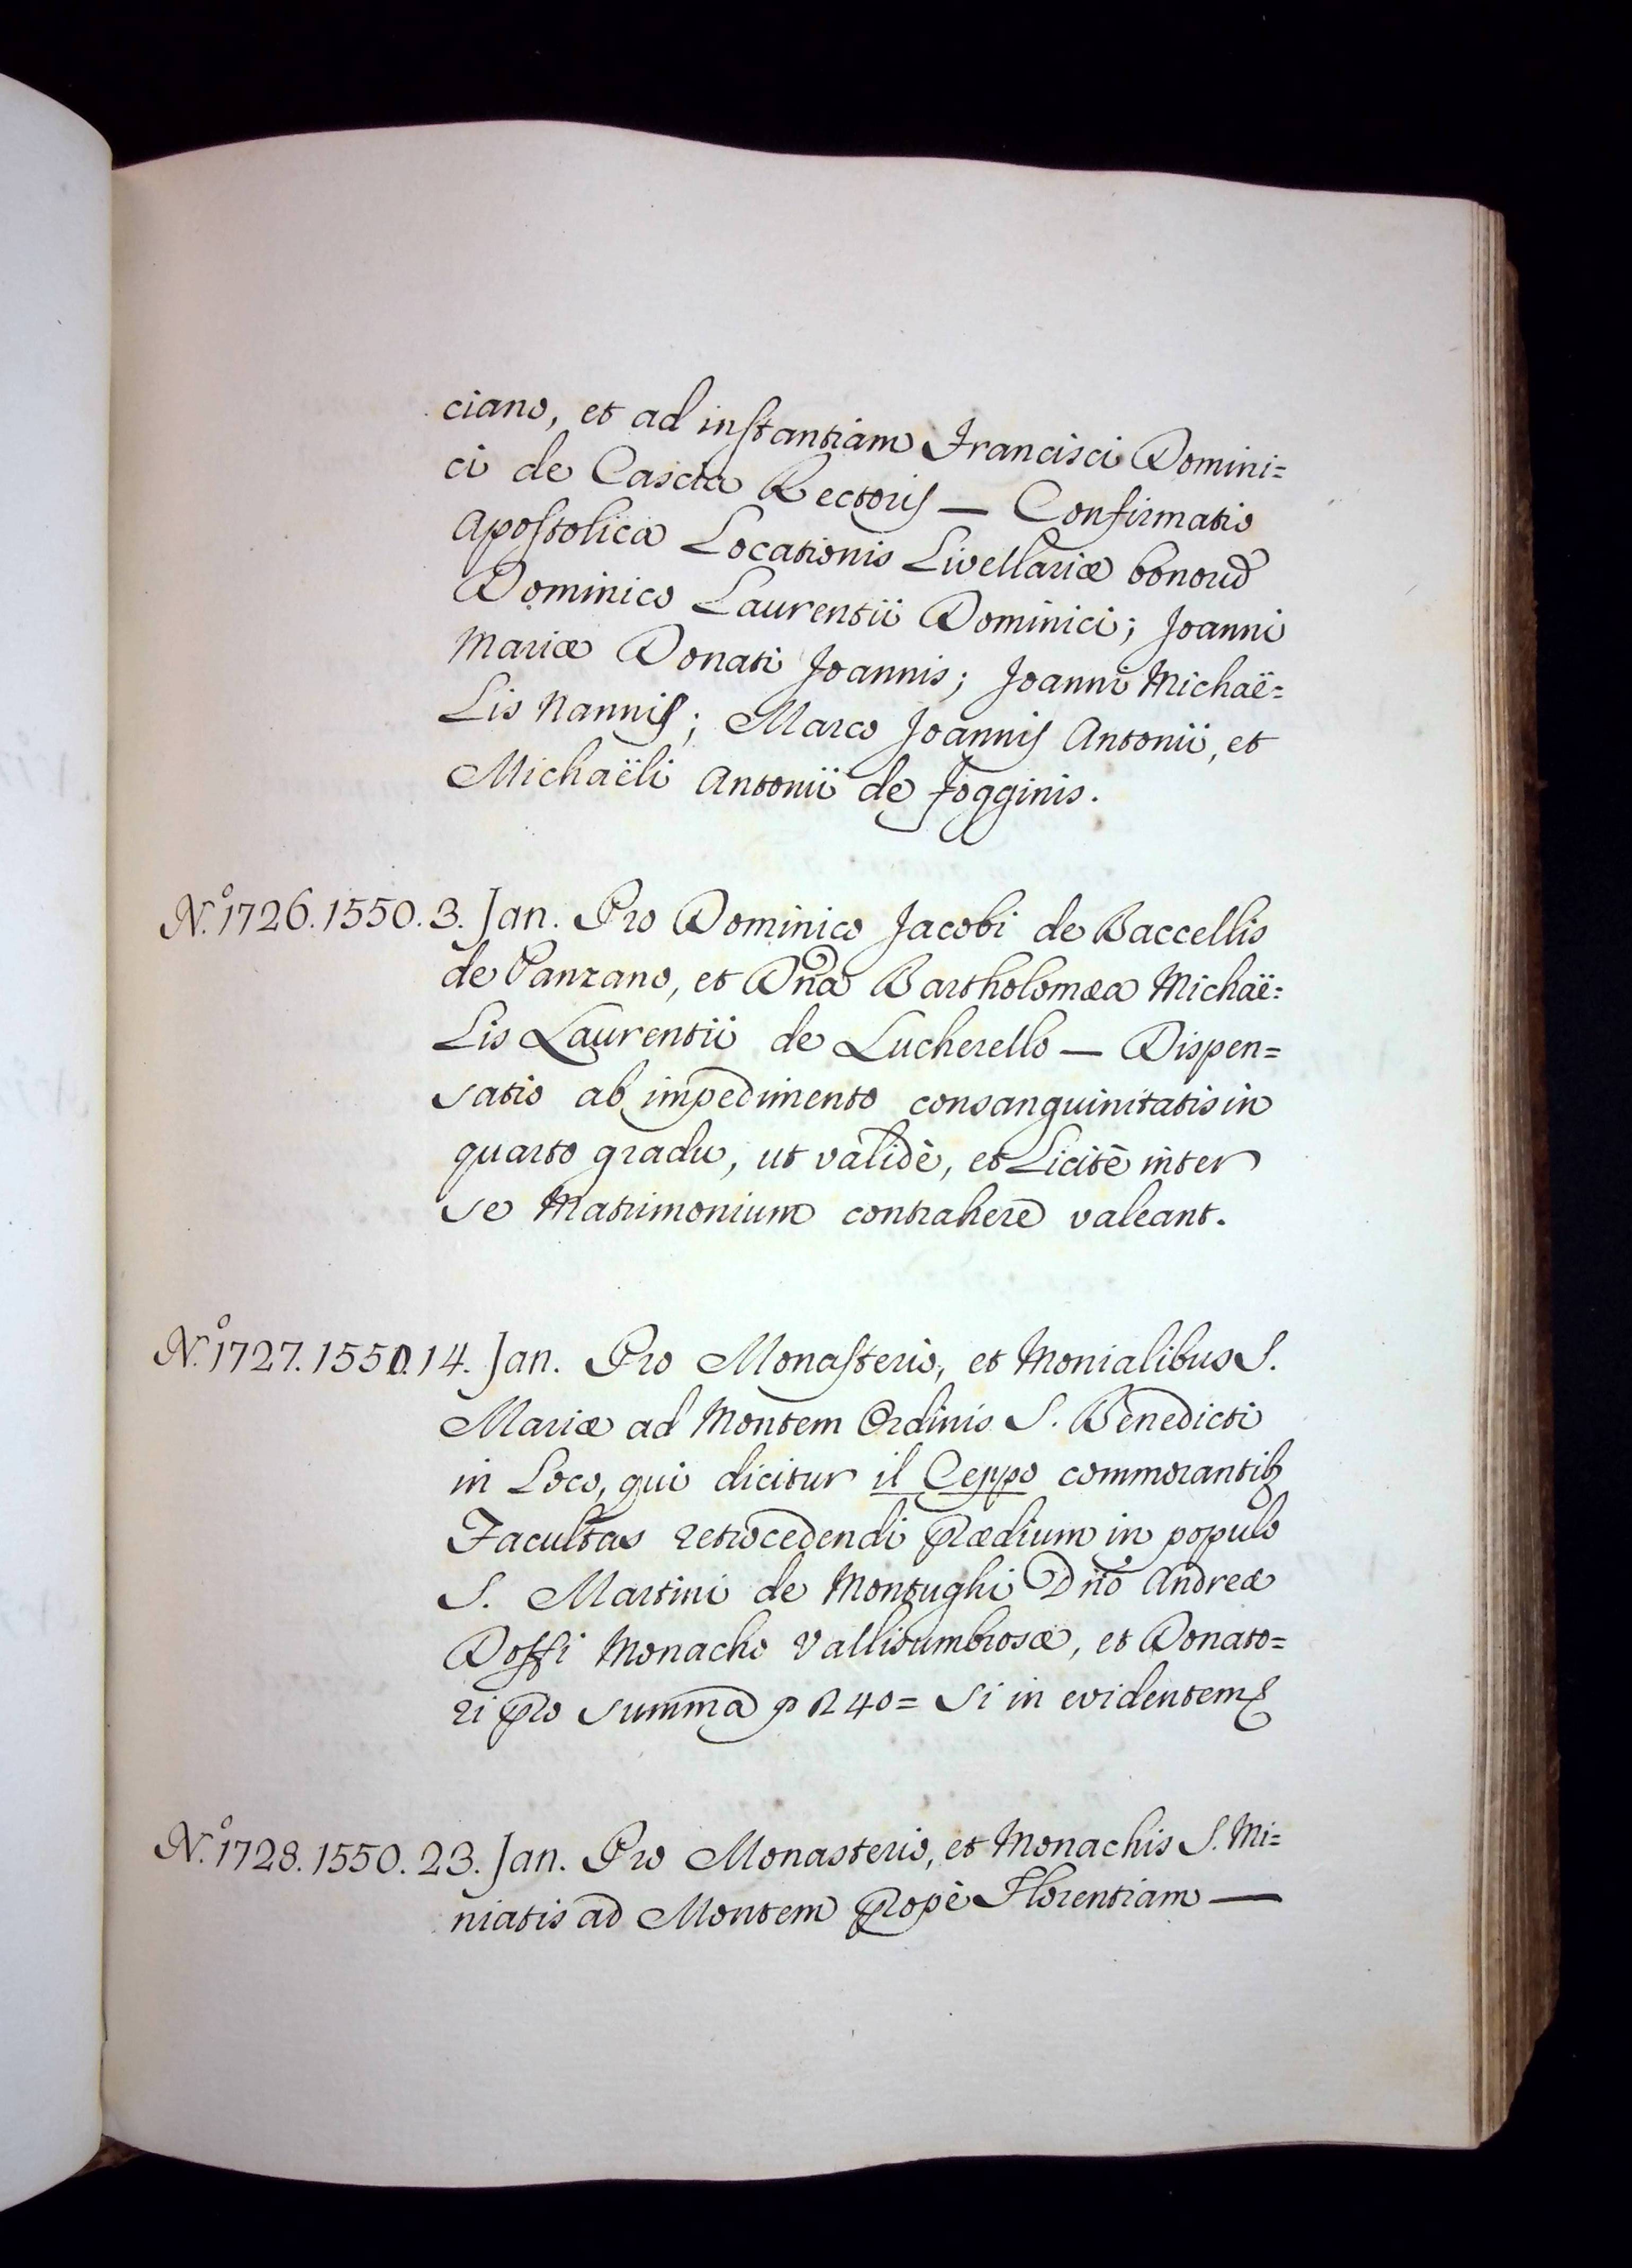 ciano, et ad instantiam Francisci Domini=
ci de Cascia Rectoris — Confirmatio
Apostolica Locationis Livellariæ bonorũ
Dominico Laurentii Dominici; Joanni
Mariæ Donati Joannis; Joanni Michaë=
lis Nannis; Marco Joannis Antonii, et
Michaëli Antonii de Fogginis.
N.º 1726. 1550. 3. Jan. Pro Dominico Jacobi de Baccellis
de Panzano, et Dna Bartholomæa Michaë=
lis Laurentii de Lucherello — Dispen=
satio ab impedimento consanguinitatis in
quarto gradu, ut validè, et licitè inter
se Matrimonium contrahere valeant.
N.º 1727. 1550. 14. Jan. Pro Monasterio, et Monialibus S.
Mariæ ad Montem Ordinis S. Benedicti
in Loco, qui dicitur il Ceppo commorantibꝫ
Facultas retrocedendi Prædium in populo
S. Martini de Montughi Dño Andreæ
Doffi Monacho Vallisumbrosæ, et Donato=
ri pro summa 240= Si in evidentem
N.º 1728. 1550. 23. Jan. Pro Monasterio, et Monachis S. Mi=
niatis ad Montem propè Florentiam —